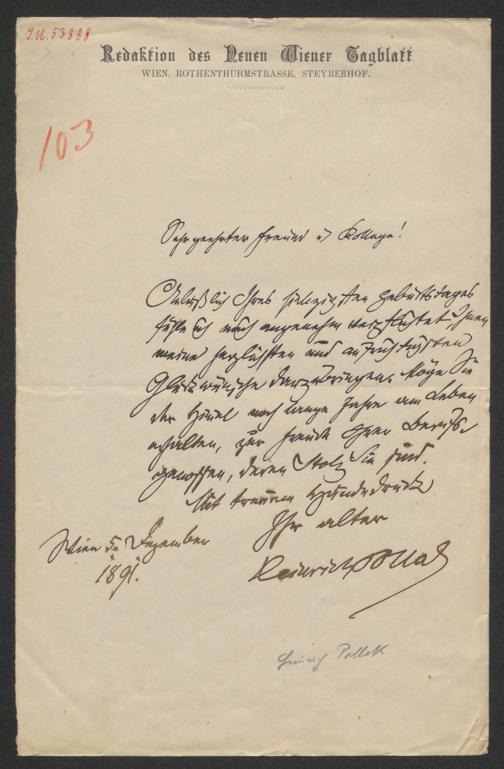 J.N. 53888
Redaktion des Neuen Wiener Tagblatt
WIEN, ROTHENTHURMSTRASSE, STEYRERHOF.
103
Sehr geehrter Freund u. Kollege!
Anläßlich Ihres siebzigsten Geburtstages
fühle ich mich angenehm verpflichtet, Ihnen
meine herzlichsten und aufrichtigsten
Glückwünsche darzubringen. Möge Sie
der Himmel noch lange Jahre am Leben
erhalten, zur Freude Ihrer Berufs-
genossen, deren Stolz Sie sind.
Mit treuem Händedrucke
Ihr alter
Heinrich Pollak
Wien 5. Dezember
1891.
Heinrich Pollak